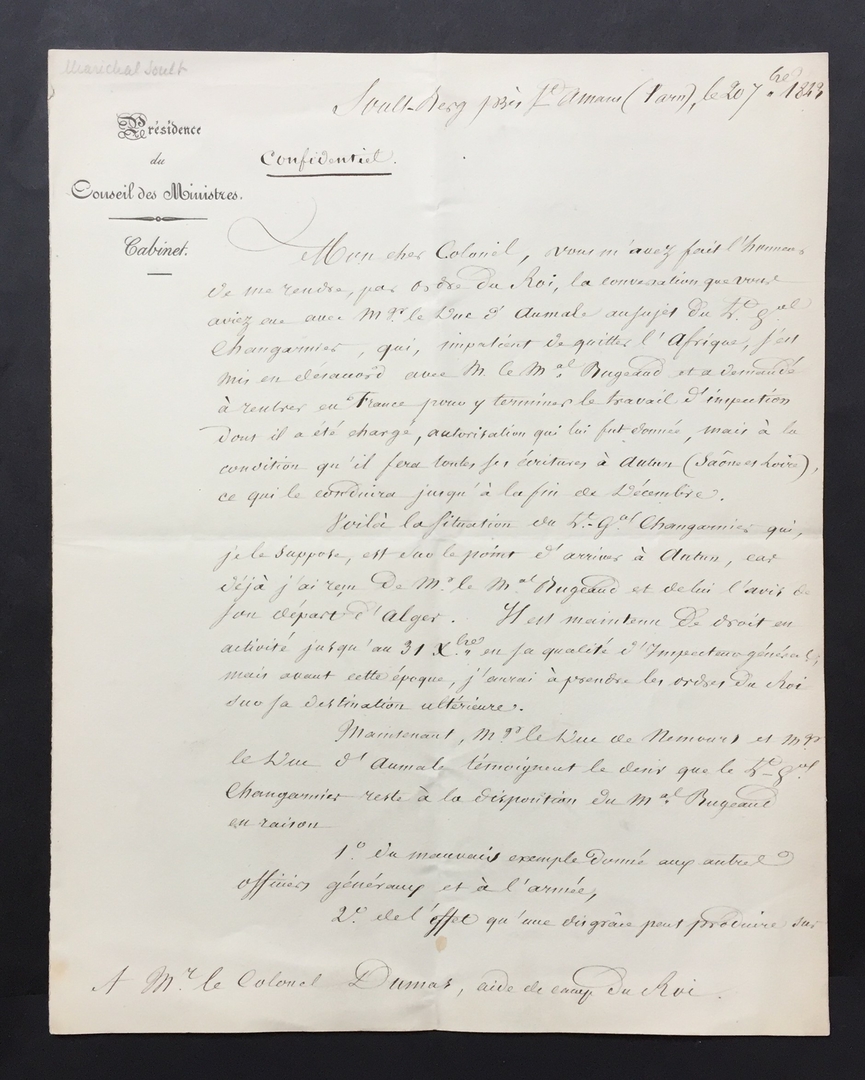 Maréchal Soult
Soult-Berg près St Amans (Tarn), le 20 7bre 1843
Présidence
du
Conseil des Ministres.
Cabinet.
Confidentiel.
Mon cher Colonel, vous m'avez fait l'honneur
de me rendre, par ordre du Roi, la conversation que vous
aviez eue avec Mgr le Duc d'Aumale au sujet du Lt. Gal
Changarnier, qui, impatient de quitter l'Afrique, s'est
mis en désaccord avec M. le Mal Bugeaud et a demandé
à rentrer en France pour y terminer le travail d'inspection
dont il a été chargé, autorisation qui lui fut donnée, mais à la
condition qu'il fera toutes ses écritures à Autun (Saône et Loire),
ce qui le conduira jusqu'à la fin de Décembre.
Voilà la situation du Lt-Gal Changarnier qui,
je le suppose, est sur le point d'arriver à Autun, car
déjà j'ai reçu de Mr le Mal Bugeaud et de lui l'avis de
son départ d'Alger. Il est maintenu de droit en
activité jusqu'au 31 Xbre en sa qualité d'Inspecteur-général;
mais avant cette époque, j'aurai à prendre les ordres du Roi
sur sa destination ultérieure.
Maintenant, Mgr le Duc de Nemours et Mgr
le Duc d'Aumale témoignent le desir que le Lt-Gal
Changarnier reste à la disposition du Mal Bugeaud
en raison
1° du mauvais exemple donné aux autres
officiers généraux et à l'armée,
2° de l'effet qu'une disgrâce peut produire sur
A Mr. le Colonel Dumas, aide de camp du Roi.